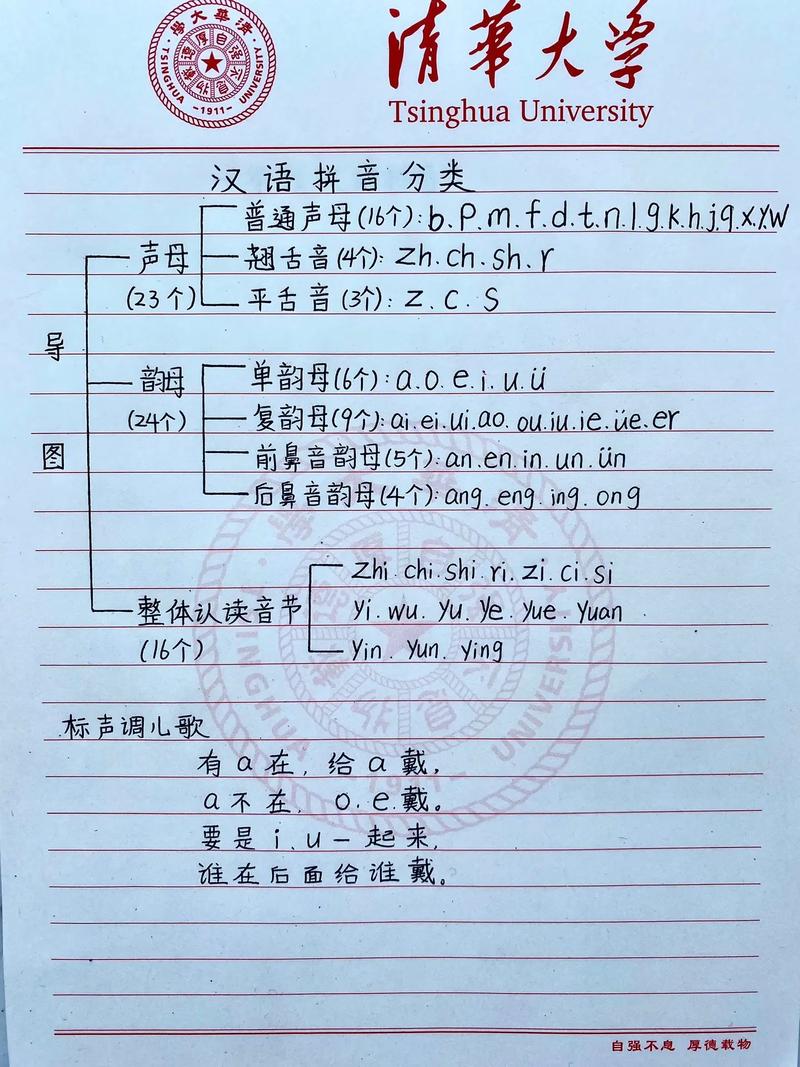 學大華清
·TSINGHUA UNIVERSITY·
自强不息 厚德載物
-1911-
清華大学
Tsinghua University
汉语拼音分类
普通声母(16个):b.p.m.f.d.t.n.l.g.k.h.j.q.x.y.w
声母 翘舌音(4个):zh.ch.sh.r
(23个) 平舌音(3个):z.c.s
导
韵母 单韵母(6个):a.o.e.i.u.ü
(24个) 复韵母(9个):ai.ei.ui.ao.ou.iu.ie.üe.er
图 前鼻音韵母(5个):an.en.in.un.ün
后鼻音韵母(4个):ang.eng.ing.ong
zhi.chi.shi.ri.zi.ci.si
整体认读音节 yi.wu.yu.ye.yue.yuan
(16个) yin.yun.ying
标声调儿歌
有a在,给a戴,
a不在,o.e.戴。
要是i、u一起来,
谁在后面给谁戴。
自强不息 厚德载物